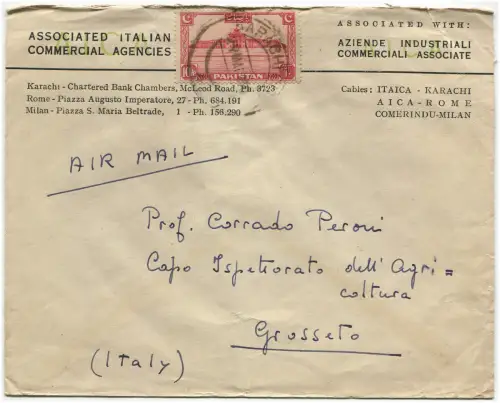 ASSOCIATED ITALIAN
COMMERCIAL AGENCIES
PAKISTAN
KARACHI
ASSOCIATED WITH:
AZIENDE INDUSTRIALI
COMMERCIALI ASSOCIATE
Karachi - Chartered Bank Chambers, McLeod Road, Ph. 3723
Rome - Piazza Augusto Imperatore, 27 - Ph. 684.191
Milan - Piazza S. Maria Beltrade, 1 - Ph. 156.290
Cables: ITAICA - KARACHI
AICA - ROME
COMERINDU - MILAN
AIR MAIL
Prof. Corrado Peroni
Capo Ispettorato dell'Agri=
coltura
Grosseto
(Italy)